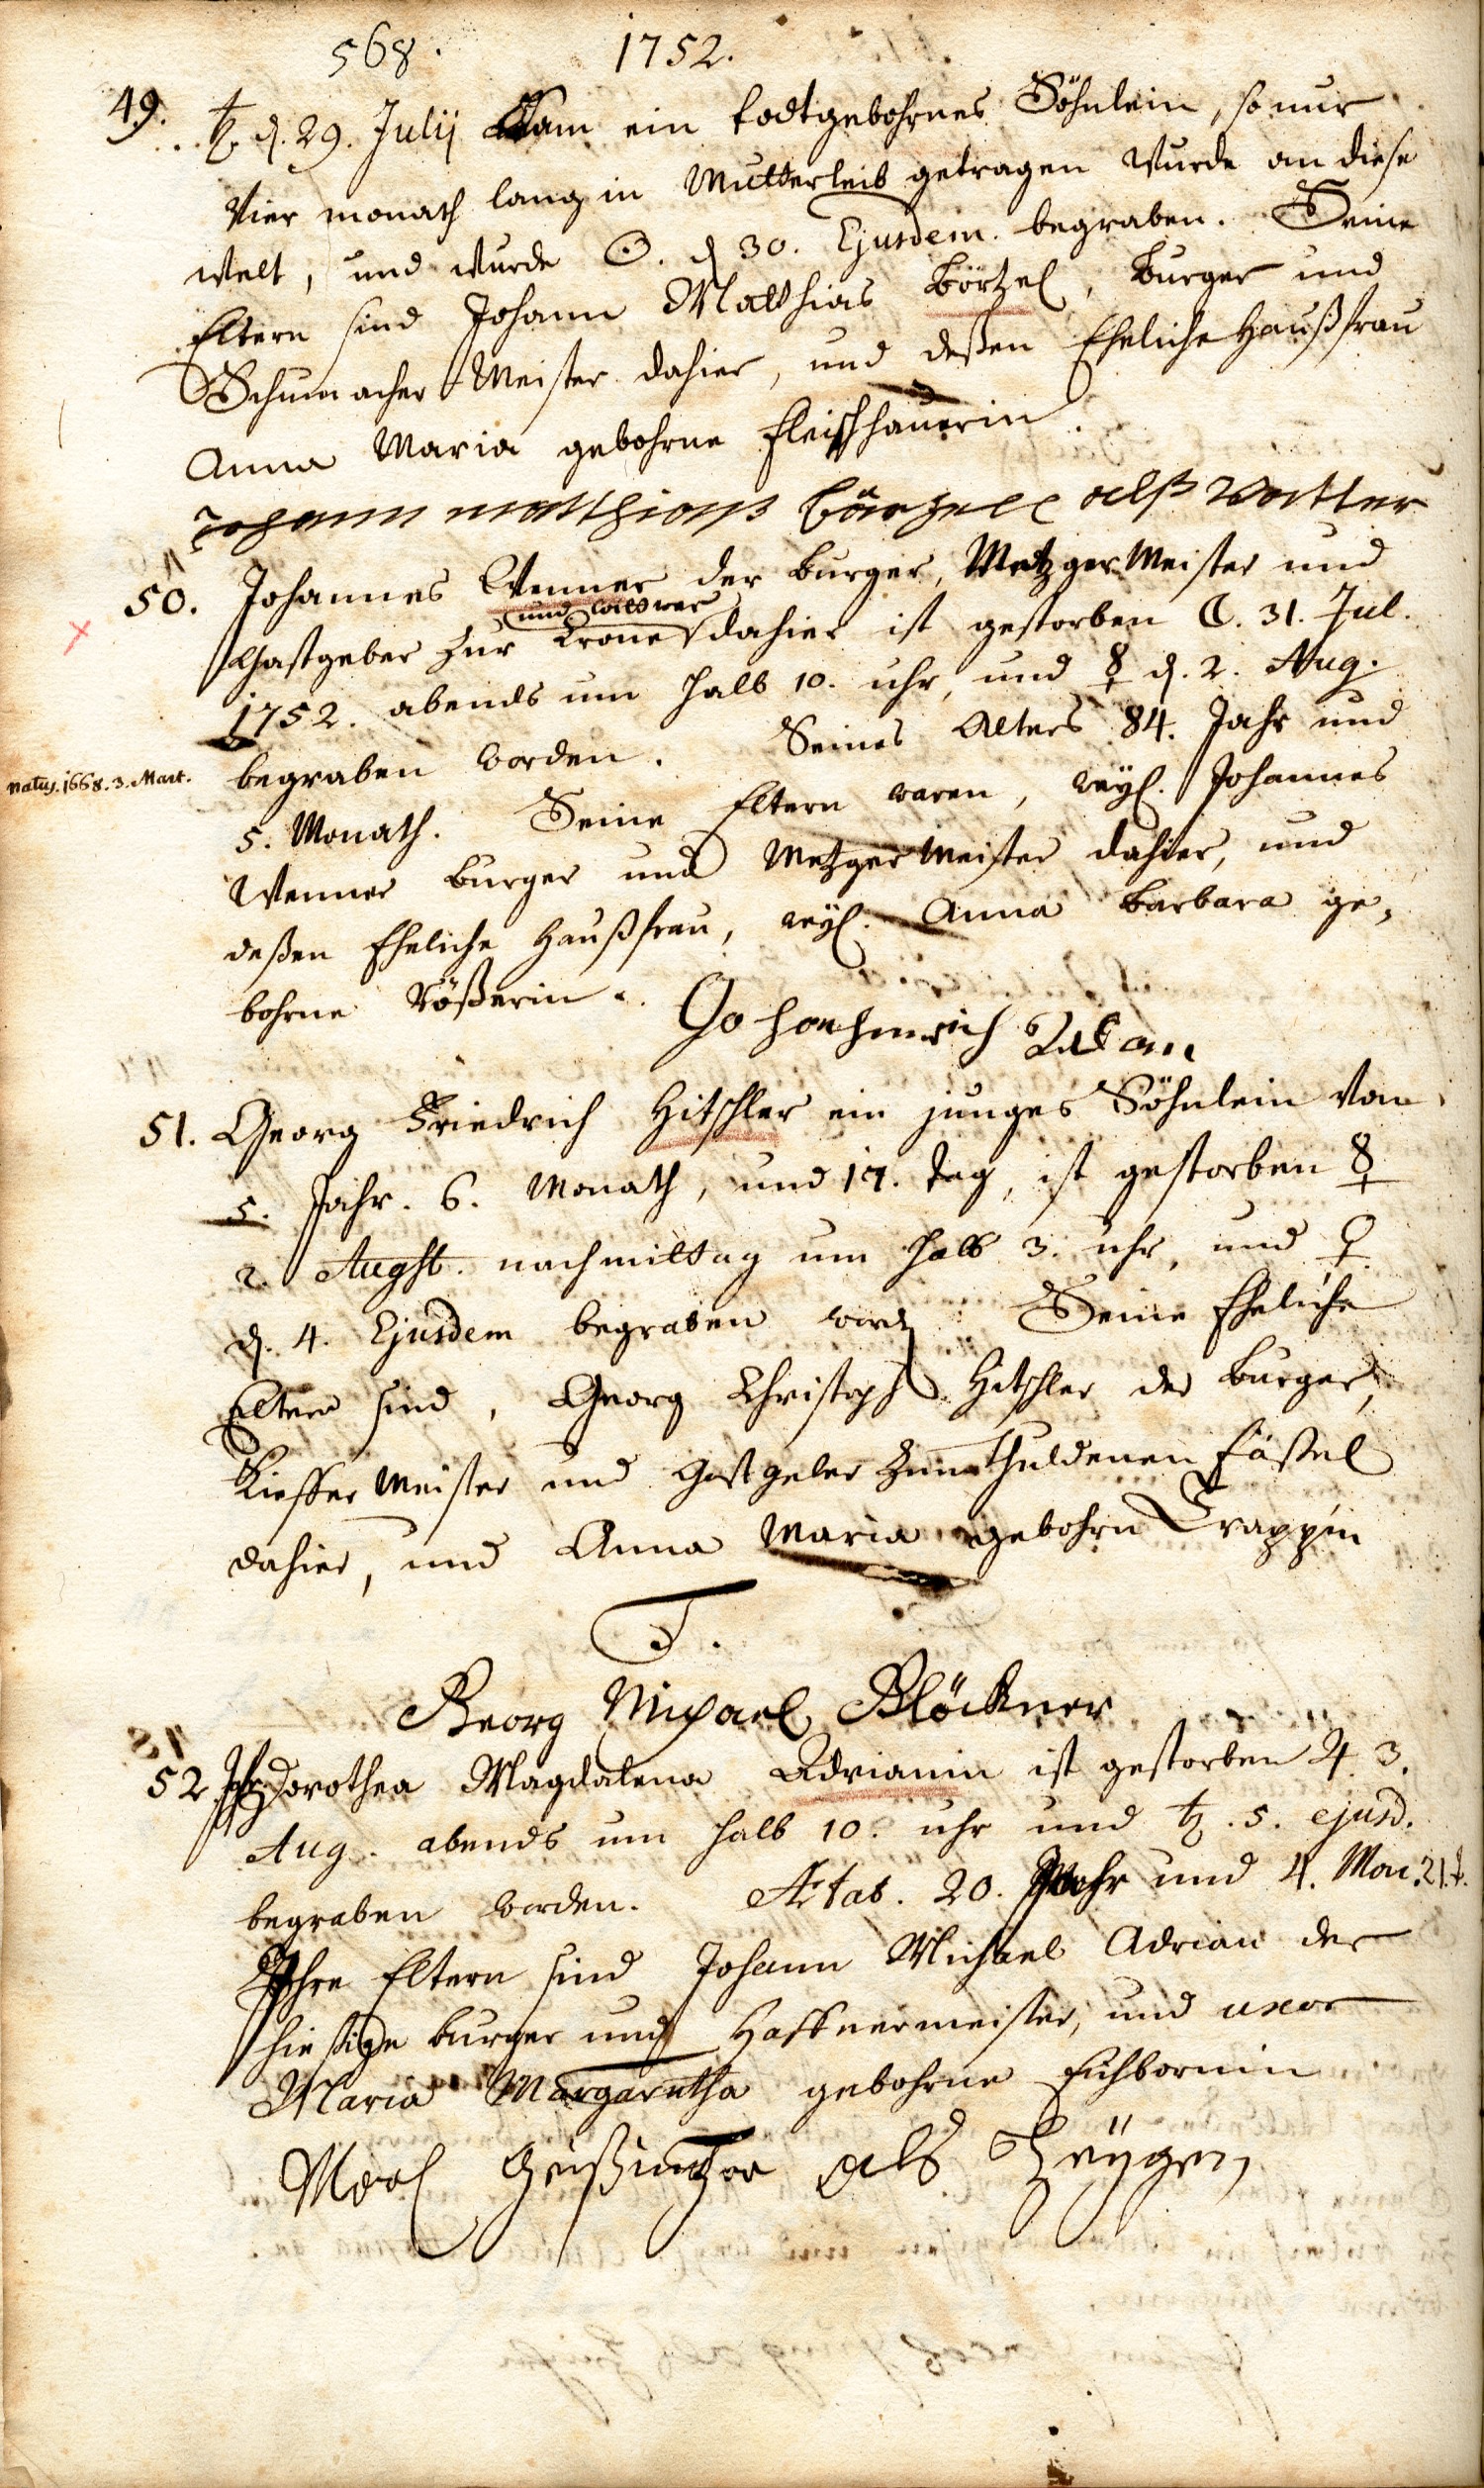 568. 1752.
49. ♄. d. 29. Julij Kam ein todtgebohrnes Söhnlein, so nur
Vier monath lang in Mutterleib getragen wurde an diese
Welt, und wurde ☉. d. 30. Ejusdem. begraben. Seine
Eltern sind Johann Matthias Börtzel, Burger und
Schumacher Meister dahier, und deßen Eheliche Haußfrau
Anna Maria gebohrne Fleischhauerin.
Johann matthias börzell alß Vatter
50. Johannes Wenner der Burger, Metzger Meister und
und Wittwer
Gastgeber zur Krone dahier ist gestorben ☾. 31. Jul.
1752. abends um halb 10. uhr, und ☿ d. 2. Aug.
begraben worden. Seines Alters 84. Jahr und
natus. 1668. 3. Mart.
5. Monath. Seine Eltern waren, weyl. Johannes
Wenner Burger und Metzger Meister dahier, und
deßen Eheliche Haußfrau, weyl. Anna Barbara ge-
bohrne Rößerin.
51. Georg Friedrich Hitschler ein junges Söhnlein von
5. Jahr. 6. Monath, und 17. tag, ist gestorben ☿
2. Augst. nachmittag um halb 3. uhr, und ♀
d. 4. Ejusdem begraben word. Seine Eheliche
Eltern sind, Georg Christoph Hitschler der Burger,
Kieffer Meister und Gastgeber zum Guldenen Fäßel
dahier, und Anna Maria gebohrn Trappin
T.
Georg Michael Glöckner
52. Jfr. Dorothea Magdalena Adrianin ist gestorben ♃. 3.
Aug. abends um halb 10. uhr und ♄. 5. ejusd.
begraben worden. Ætat. 20. Jahr und 4. Mon. 21. t.
Ihre Eltern sind Johann Michael Adrian der
hiesige Burger und Haffnermeister, und uxor
Maria Margaretha gebohrne Eichbornin
als Zeygen